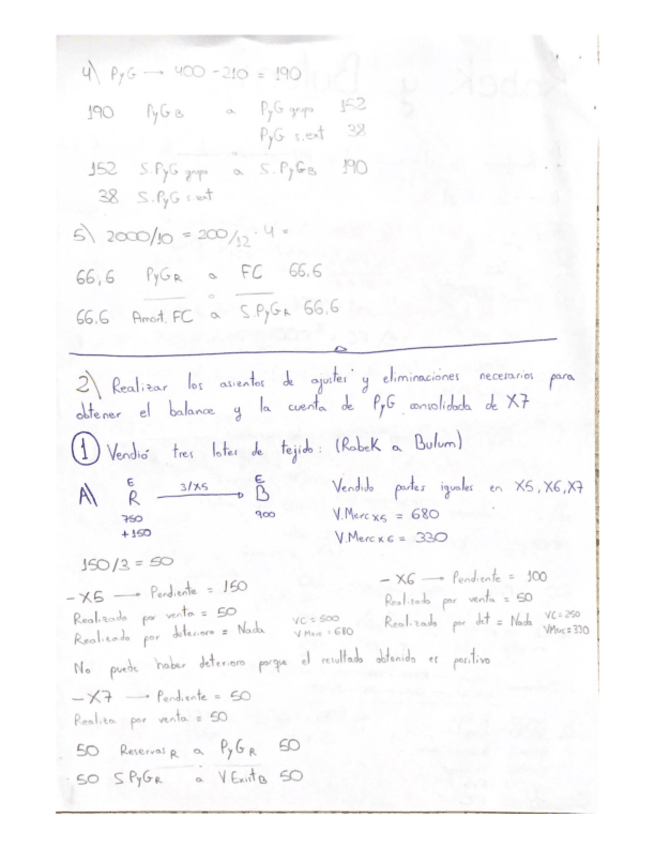 4) PyG → 400 - 210 = 190
190 PyG B a PyG grupo 152
PyG s.ext 38
152 S.PyG grupo a S.PyG B 190
38 S.PyG s.ext
5) 2000/10 = 200/12 · 4 =
66,6 PyG R a FC 66.6
66.6 Amort. FC a S.PyG R 66.6
2) Realizar los asientos de ajustes y eliminaciones necesarios para
obtener el balance y la cuenta de PyG consolidada de X7
1 Vendió tres lotes de tejido: (Robek a Bulum)
A) E R 3/X5 → E B
750 900
+150
Vendido partes iguales en X5, X6, X7
V.Merc X5 = 680
V.Merc X6 = 330
150/3 = 50
- X5 → Pendiente = 150
Realizado por venta = 50
Realizado por deterioro = Nada
VC = 500
V Merc = 680
- X6 → Pendiente = 100
Realizado por venta = 50
Realizado por det = Nada
VC = 250
VMerc = 330
No puede haber deterioro porque el resultado obtenido es positivo
- X7 → Pendiente = 50
Realiza por venta = 50
50 Reservas R a PyG R 50
50 S PyG R a V Exist B 50